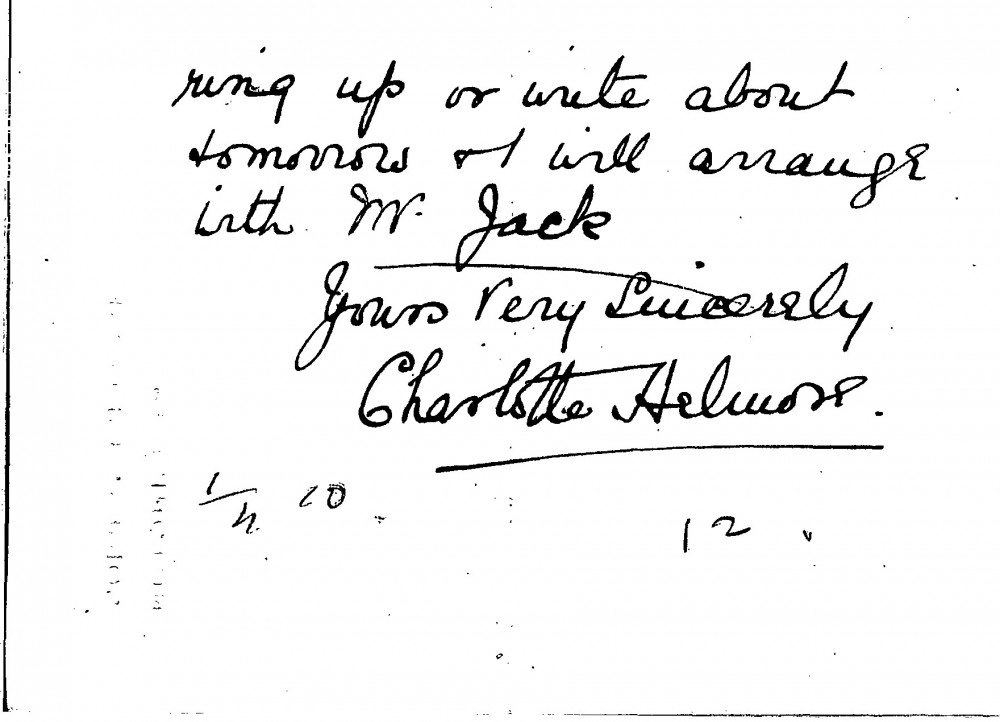 ring up or write about
tomorrow & I will arrange
with Mr. Jack
Yours Very Sincerely
Charlotte Helmore.
12